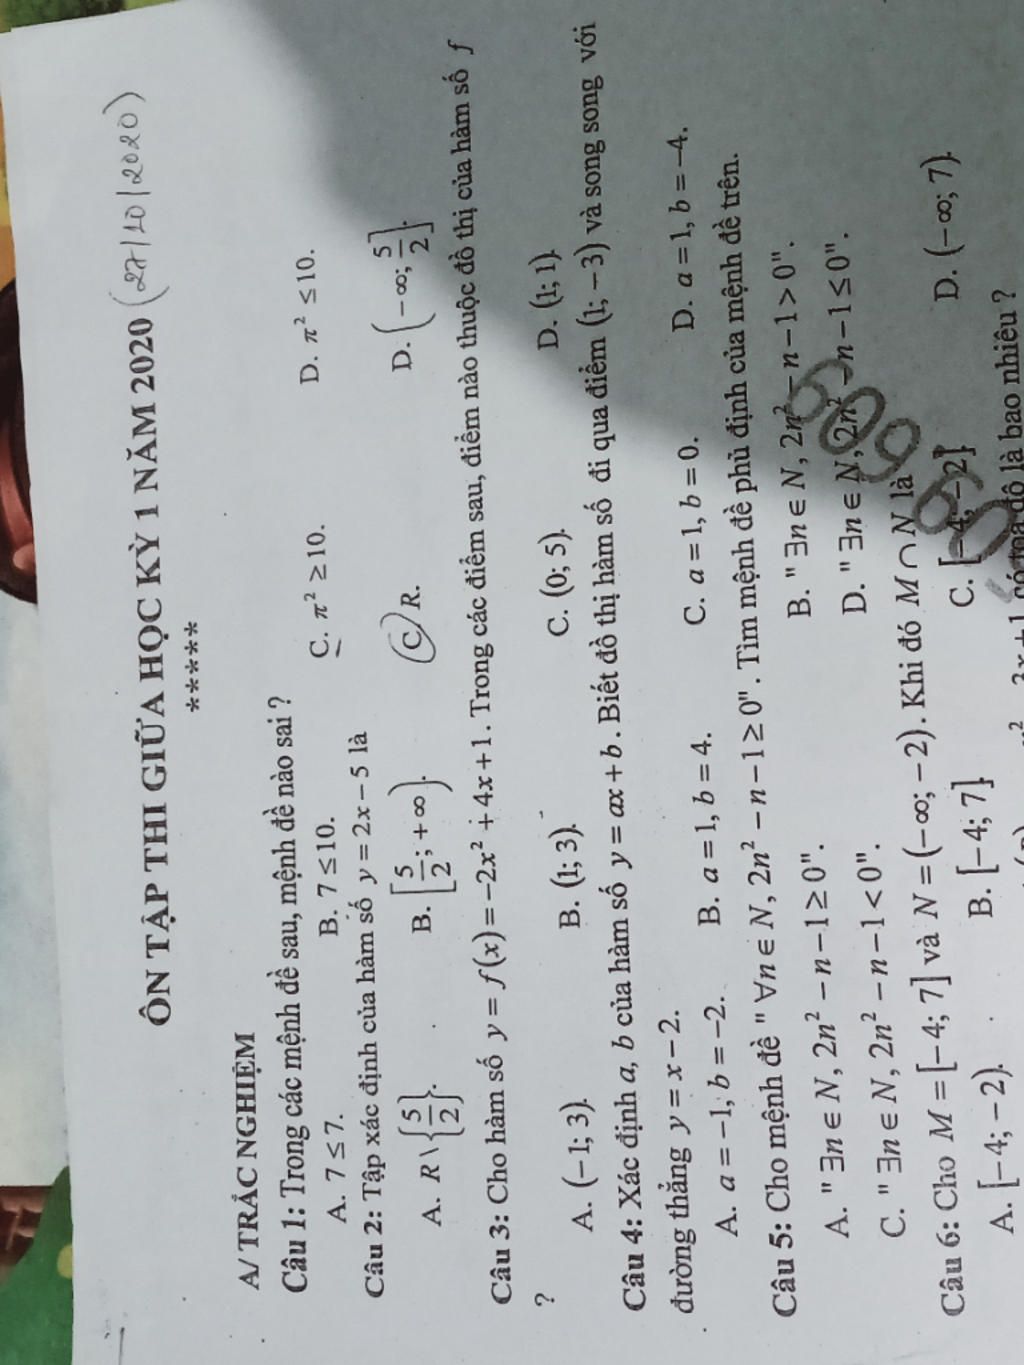 ÔN TẬP THI GIỮA HỌC KỲ 1 NĂM 2020 (27/10/2020)
*****
A/ TRẮC NGHIỆM
Câu 1: Trong các mệnh đề sau, mệnh đề nào sai ?
A. 7 ≤ 7. B. 7 ≤ 10. C. π² ≥ 10. D. π² ≤ 10.
Câu 2: Tập xác định của hàm số y = 2x − 5 là
A. R \ {5/2}. B. [5/2; +∞). C. R. D. (−∞; 5/2].
Câu 3: Cho hàm số y = f(x) = −2x² + 4x + 1. Trong các điểm sau, điểm nào thuộc đồ thị của hàm số f
?
A. (−1; 3). B. (1; 3). C. (0; 5). D. (1; 1).
Câu 4: Xác định a, b của hàm số y = ax + b. Biết đồ thị hàm số đi qua điểm (1; −3) và song song với
đường thẳng y = x − 2.
A. a = −1, b = −2. B. a = 1, b = 4. C. a = 1, b = 0. D. a = 1, b = −4.
Câu 5: Cho mệnh đề " ∀n ∈ N, 2n² − n − 1 ≥ 0". Tìm mệnh đề phủ định của mệnh đề trên.
A. " ∃n ∈ N, 2n² − n − 1 ≥ 0". B. " ∃n ∈ N, 2n² − n − 1 > 0".
C. " ∃n ∈ N, 2n² − n − 1 < 0". D. " ∃n ∈ N, 2n² − n − 1 ≤ 0".
Câu 6: Cho M = [−4; 7] và N = (−∞; −2). Khi đó M ∩ N là
A. [−4; −2). B. [−4; 7]. C. [−4; −2]. D. (−∞; 7).
có toạ độ là bao nhiêu ?